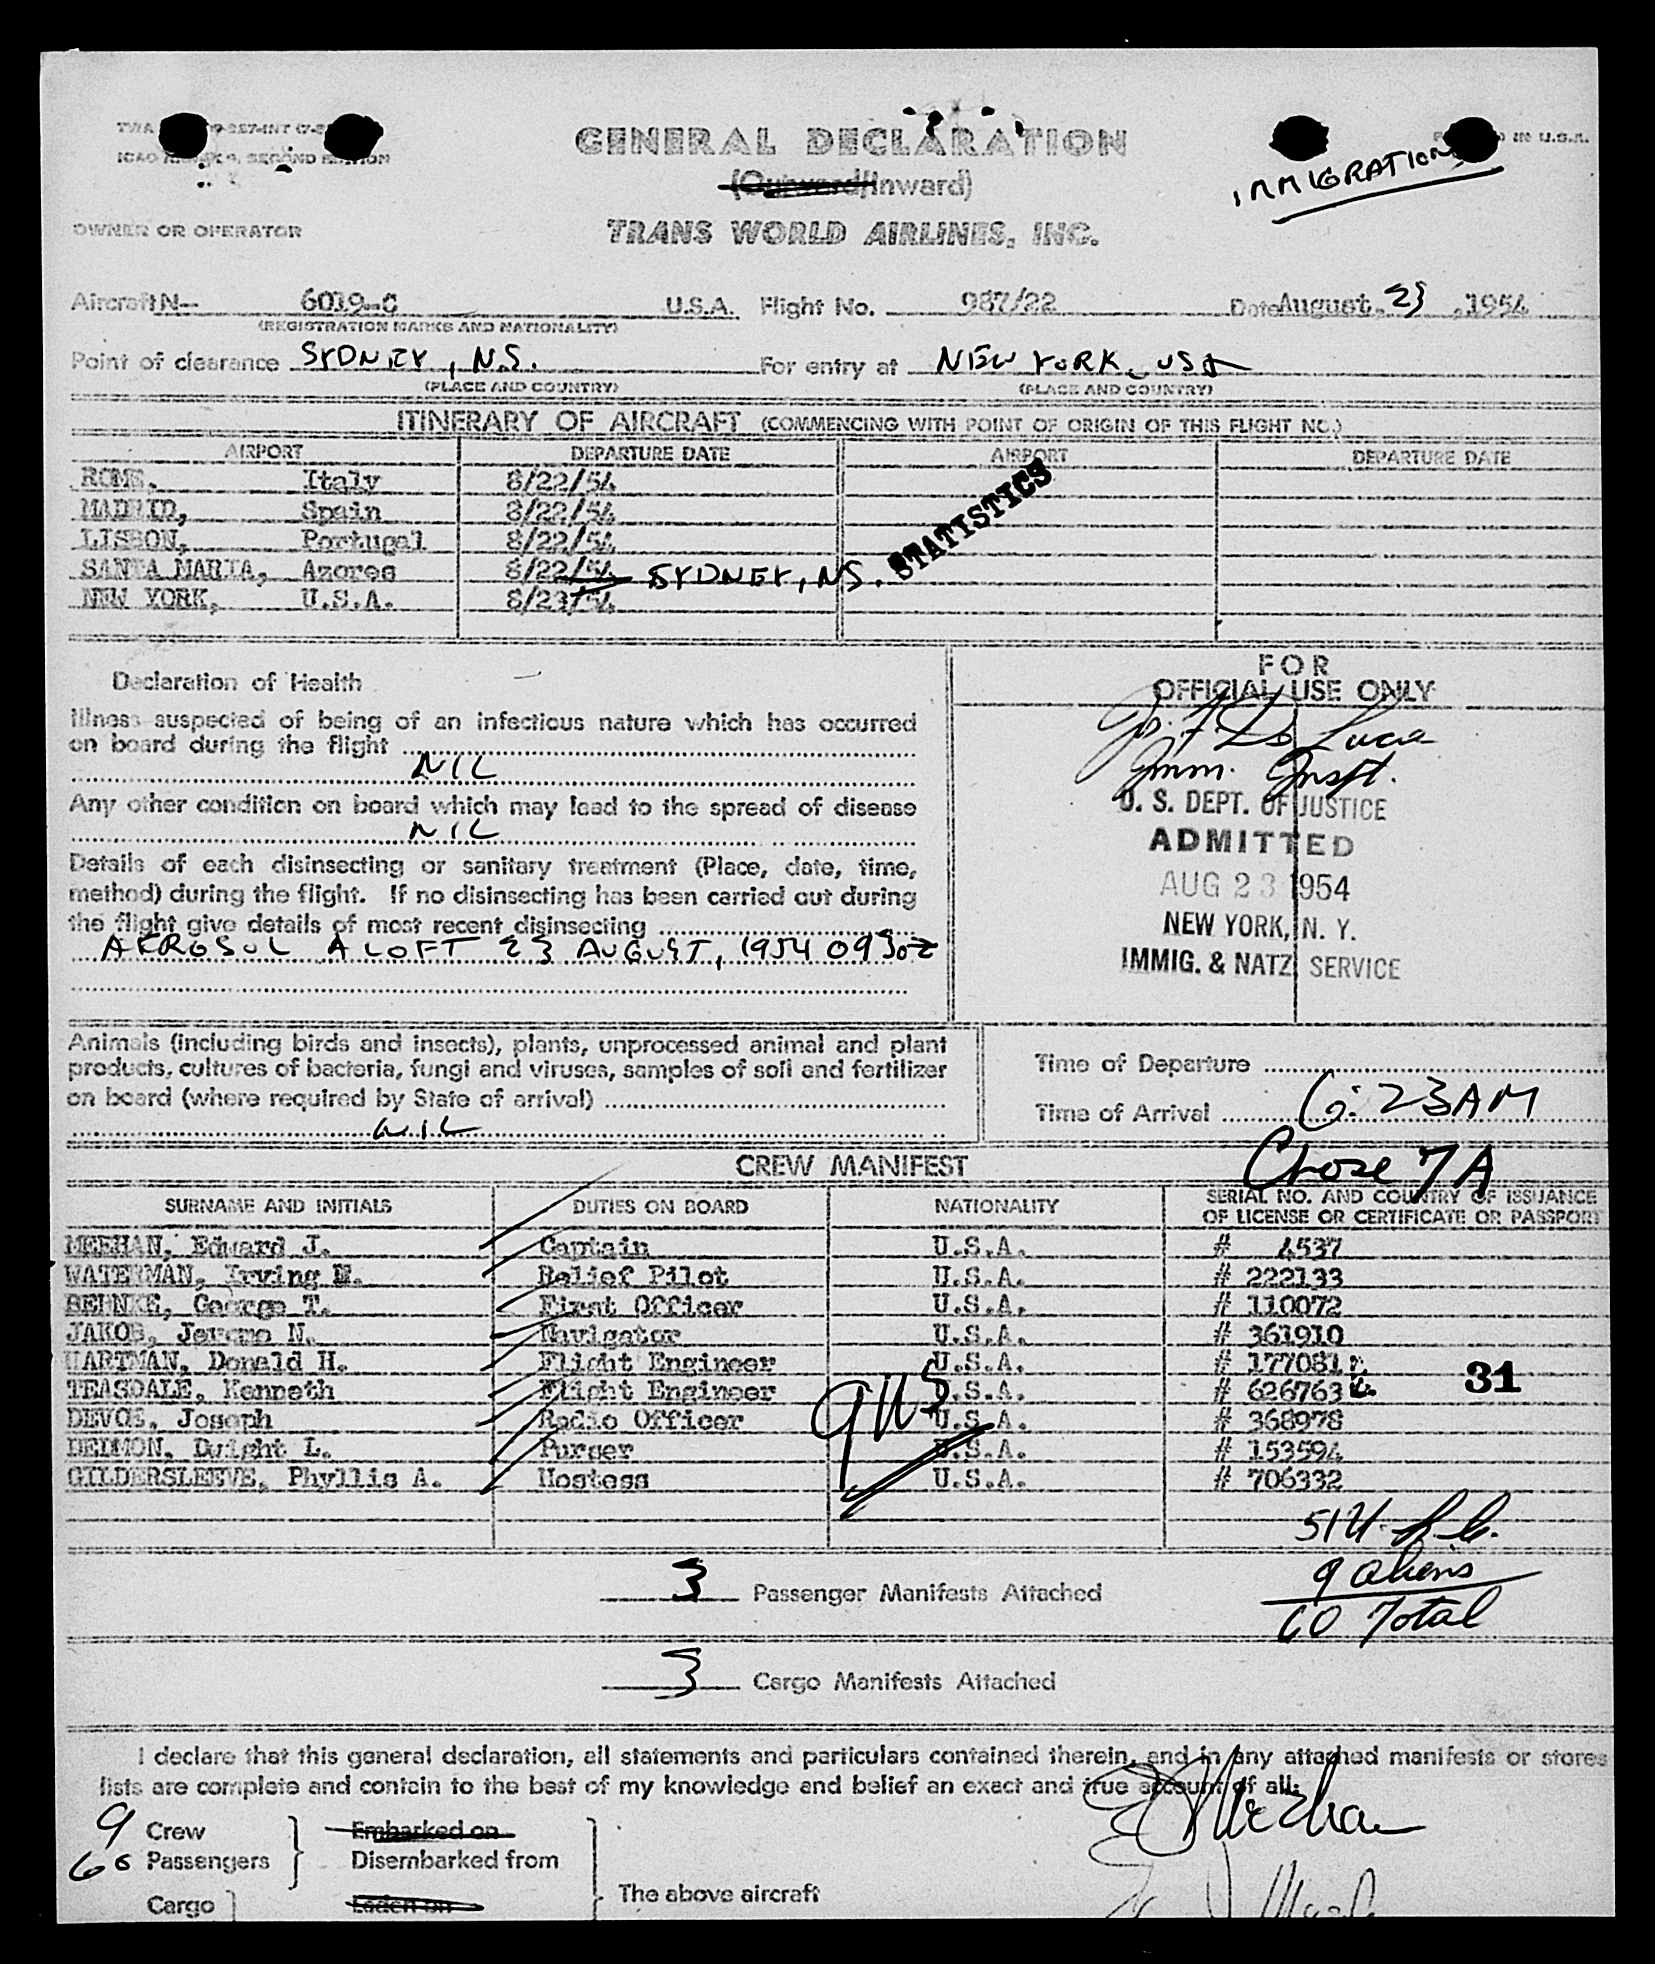 GENERAL DECLARATION
(Outward/Inward)
IMMIGRATION
IN U.S.A.
OWNER OR OPERATOR
TRANS WORLD AIRLINES, INC.
Aircraft N- 6019-C U.S.A. Flight No. 987/22 Date August, 23, 1954
(REGISTRATION MARKS AND NATIONALITY)
Point of clearance SYDNEY, N.S. For entry at NEW YORK, USA
(PLACE AND COUNTRY) (PLACE AND COUNTRY)
ITINERARY OF AIRCRAFT (COMMENCING WITH POINT OF ORIGIN OF THIS FLIGHT NO.)
AIRPORT DEPARTURE DATE AIRPORT DEPARTURE DATE
ROME, Italy 8/22/54
MADRID, Spain 8/22/54
LISBON, Portugal 8/22/54
SANTA MARIA, Azores 8/22/54 SYDNEY, NS.
NEW YORK, U.S.A. 8/23/54
STATISTICS
Declaration of Health
Illness suspected of being of an infectious nature which has occurred
on board during the flight
NIL
Any other condition on board which may lead to the spread of disease
NIL
Details of each disinsecting or sanitary treatment (Place, date, time,
method) during the flight. If no disinsecting has been carried out during
the flight give details of most recent disinsecting
AEROSOL ALOFT 23 AUGUST, 1954 0930Z
FOR
OFFICIAL USE ONLY
Lucia
Imm. Inspt.
U. S. DEPT. OF JUSTICE
ADMITTED
AUG 23 1954
NEW YORK, N. Y.
IMMIG. & NATZ SERVICE
Animals (including birds and insects), plants, unprocessed animal and plant
products, cultures of bacteria, fungi and viruses, samples of soil and fertilizer
on board (where required by State of arrival)
NIL
Time of Departure
Time of Arrival 6:23 AM
7A
CREW MANIFEST
SURNAME AND INITIALS DUTIES ON BOARD NATIONALITY SERIAL NO. AND COUNTRY OF ISSUANCE
OF LICENSE OR CERTIFICATE OR PASSPORT
MEEHAN, Edward J. Captain U.S.A. # 4537
WATERMAN, Irving M. Relief Pilot U.S.A. # 222133
BEHNKE, George T. First Officer U.S.A. # 110072
JAKOB, Jerome N. Navigator U.S.A. # 361910
HARTMAN, Donald H. Flight Engineer U.S.A. # 177081
TEASDALE, Kenneth Flight Engineer U.S.A. # 626763
DEVOS, Joseph Radio Officer U.S.A. # 368978
DEIMON, Dwight L. Purser U.S.A. # 153594
GILDERSLEEVE, Phyllis A. Hostess U.S.A. # 706332
9 US
31
51 U.S.C.
9 aliens
60 Total
3 Passenger Manifests Attached
3 Cargo Manifests Attached
I declare that this general declaration, all statements and particulars contained therein, and in any attached manifests or stores
lists are complete and contain to the best of my knowledge and belief an exact and true account of all:
E J Meehan
9 Crew Embarked on
60 Passengers Disembarked from
The above aircraft
Cargo Laden on